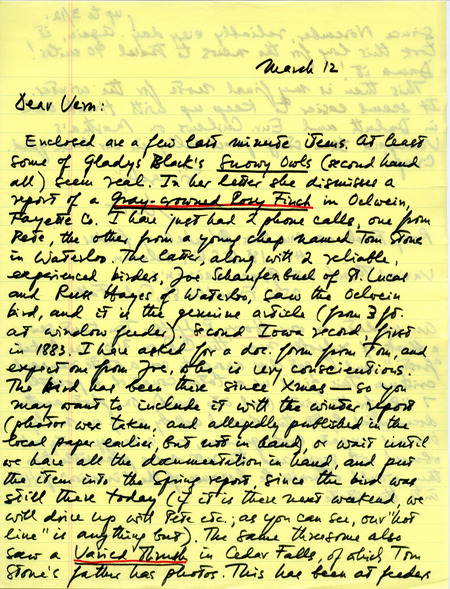 March 12
Dear Vern:
Enclosed are a few last minute items. At least
some of Gladys Black's Snowy Owls (second hand
all) seem real. In her letter she dismisses a
report of a Gray-crowned Rosy Finch in Oelwein,
Fayette Co. I have just had 2 phone calls, one from
Pete, the other from a young chap named Tom Stone
in Waterloo. The latter, along with 2 reliable,
experienced birders, Joe Schaufenbuel of St. Lucas
and Russ Hayes of Waterloo, saw the Oelwein
bird, and it is the genuine article (from 3 ft.
at window feeder). Second Iowa record, first
in 1883. I have asked for a doc. form from Tom, and
expect one from Joe, who is very conscientious.
The bird has been there since Xmas — so you
may want to include it with the winter report
(photos were taken, and allegedly published in the
local paper earlier, but not in hand), or wait until
we have all the documentation in hand, and put
the item into the Spring report, since the bird was
still there today (if it is there next weekend, we
will drive up with Pete etc.; as you can see, our "hot
line" is anything but). The same threesome also
saw a Varied Thrush in Cedar Falls, of which Tom
Stone's father has photos. This has been at feeders